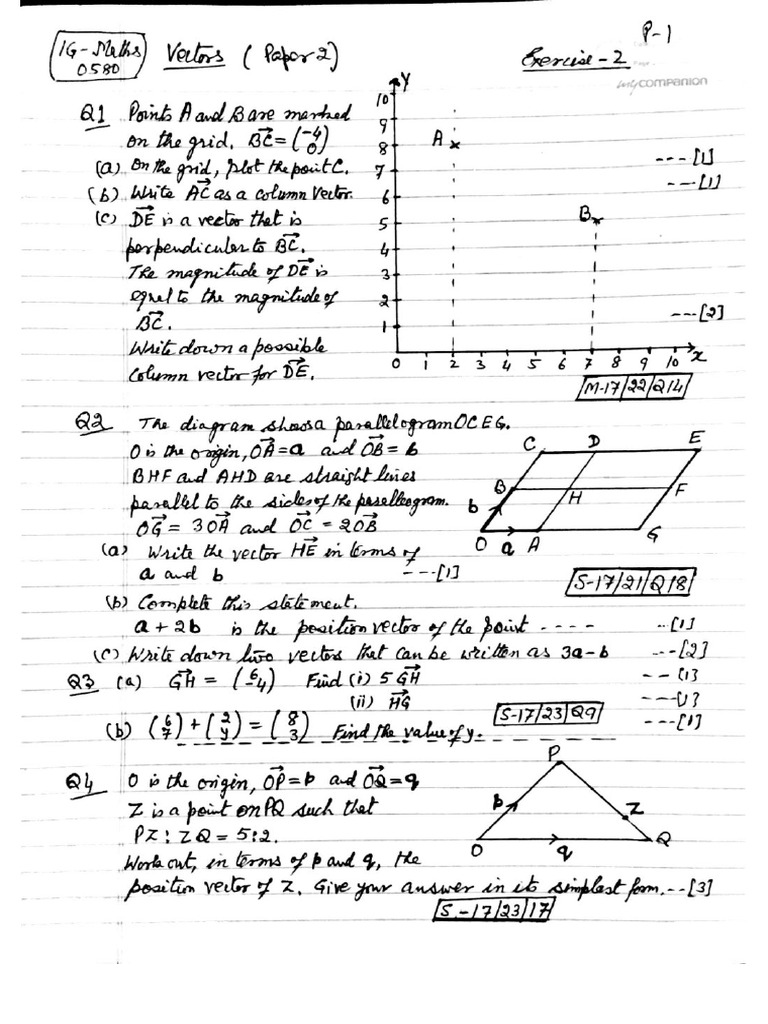 IG-Maths
0580
Vectors (Paper 2)
Exercise-2
P-1
companion
Q1 Points A and B are marked
on the grid. BC→ = (-4 0)
(a) On the grid, plot the point C. ---[1]
(b) Write AC→ as a column vector. ---[1]
(c) DE→ is a vector that is
perpendicular to BC→.
The magnitude of DE→ is
equal to the magnitude of
BC→. ---[2]
Write down a possible
column vector for DE→.
Y
10
9
8
7
6
5
4
3
2
1
A
B
0 1 2 3 4 5 6 7 8 9 10 x
M-17/22/Q14
Q2 The diagram shows a parallelogram OCEG.
O is the origin, OA→ = a and OB→ = b
BHF and AHD are straight lines
parallel to the sides of the parallelogram.
OG→ = 3OA→ and OC→ = 2OB→
(a) Write the vector HE→ in terms of
a and b ---[1]
C D E
B H F
b
O a A G
S-17/21/Q18
(b) Complete this statement.
a + 2b is the position vector of the point ---- ---[1]
(c) Write down two vectors that can be written as 3a-b ---[2]
Q3 (a) GH→ = (6 -4) Find (i) 5 GH→ ---[1]
(ii) HG→ ---[1]
S-17/23/Q9
(b) (6 7) + (2 y) = (8 3) Find the value of y. ---[1]
Q4 O is the origin, OP→ = p and OQ→ = q
Z is a point on PQ such that
PZ : ZQ = 5:2.
Work out, in terms of p and q, the
position vector of Z. Give your answer in its simplest form. --[3]
P
p
Z
O q Q
S-17/23/17